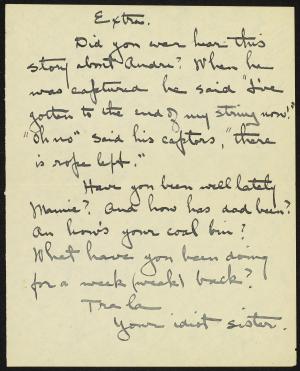 Extra.
Did you ever hear this
story about Andre? When he
was captured he said "I've
gotten to the end of my string now."
"Oh no" said his captors, "there
is rope left."
Have you been well lately
Mamie? And how has dad been?
An how's your coal bin?
What have you been doing
for a week (weak) back?
Tra la
Your idiot sister.